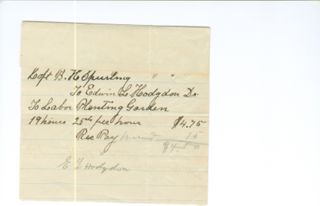 Capt B. H Spurling " "
To Edwin L Hodgdon Dr
To Labor Planting Garden
19 hours 25cts per hour $4.75
Rec Pay
E L Hodgdon